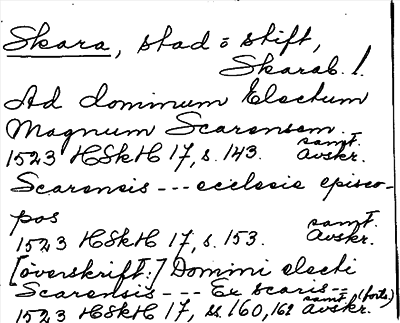 Skara, stad o stift,
Skarab. l.
Ad dominum Electum
Magnum Scarensem.
1523 HSkH 17, s. 143. samt. Avskr.
Scarensis --- ecclesie episco-
pos
1523 HSkH 17, s. 153. samt. Avskr.
[överskrift:] Domini electi
Scarensis --- Ex scaris -- (forts.)
1523 HSkH 17, ss. 160, 162 samt. Avskr.